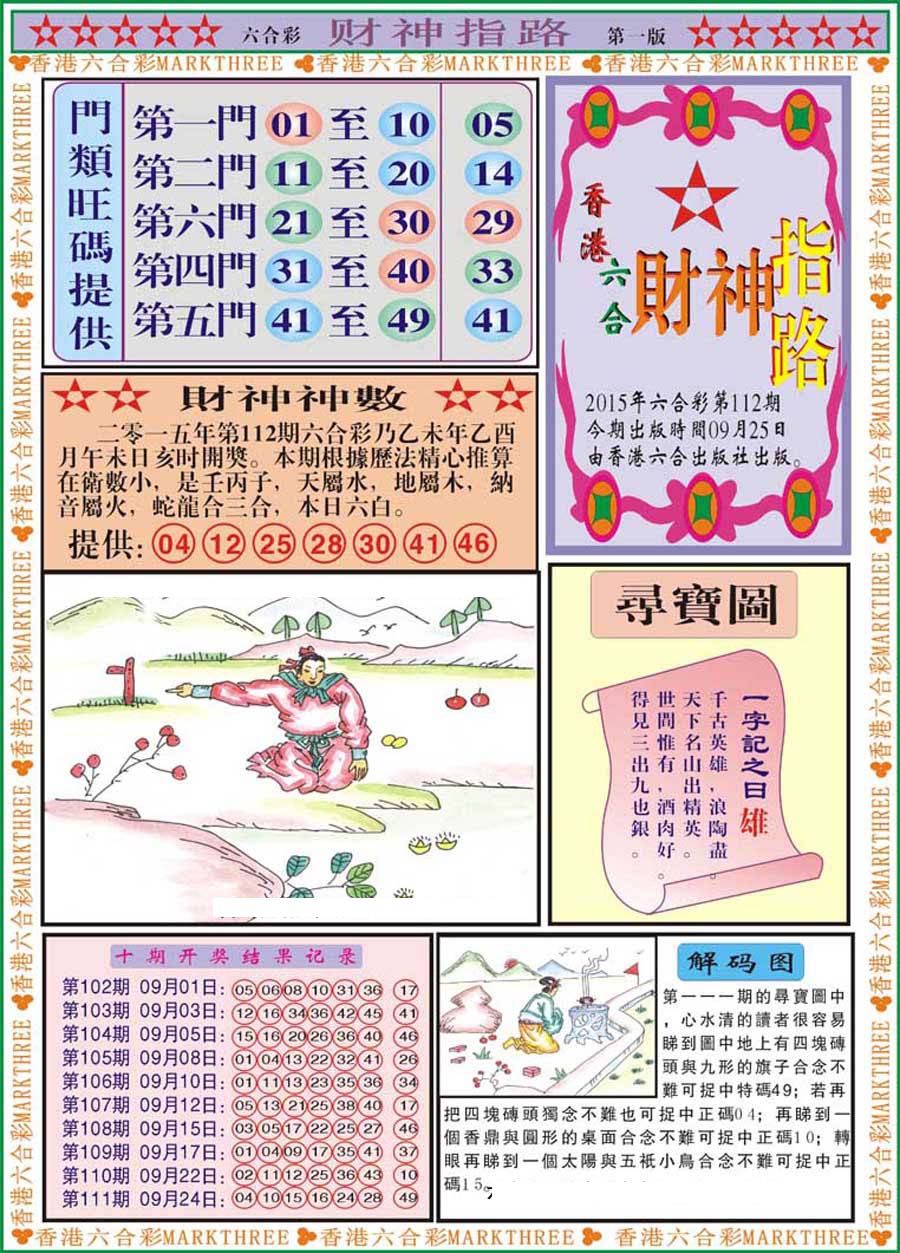 六合彩 財神指路 第一版
香港六合彩MARKTHREE 香港六合彩MARKTHREE 香港六合彩MARKTHREE
香港六合彩MARKTHREE 香港六合彩MARKTHREE 香港六合彩MARKTHREE 香港六合彩MARKTHREE 香港六合彩MARKTHREE
門類旺碼提供
第一門 01 至 10 05
第二門 11 至 20 14
第六門 21 至 30 29
第四門 31 至 40 33
第五門 41 至 49 41
香港六合
財神指路
2015年六合彩第112期
今期出版時間09月25日
由香港六合出版社出版。
財神神數
二零一五年第112期六合彩乃乙未年乙酉
月午未日亥时開獎。本期根據歷法精心推算
在衛數小，是壬丙子，天屬水，地屬木，納
音屬火，蛇龍合三合，本日六白。
提供: 04 12 25 28 30 41 46
尋寶圖
一字記之曰 雄
千古英雄，浪陶盡，
天下名山出精英。
世間惟有，酒肉好。
得見三出九也銀。
十期开奖结果记录
第102期 09月01日: 05 06 08 10 31 36 17
第103期 09月03日: 12 16 34 36 42 45 41
第104期 09月05日: 15 16 20 26 36 40 46
第105期 09月08日: 01 04 13 22 32 41 26
第106期 09月10日: 01 11 13 23 35 36 34
第107期 09月12日: 05 13 21 25 38 40 17
第108期 09月15日: 03 05 17 22 25 27 46
第109期 09月17日: 01 04 09 17 35 41 37
第110期 09月22日: 02 11 12 25 36 43 10
第111期 09月24日: 04 10 15 16 24 28 49
解码图
第一一一期的尋寶圖中
，心水清的讀者很容易
睇到圖中地上有四塊磚
頭與九形的旗子合念不
難可捉中特碼49；若再
把四塊磚頭獨念不難也可捉中正碼04；再睇到一
個香鼎與圓形的桌面合念不難可捉中正碼10；轉
眼再睇到一個太陽與五衹小鳥合念不難可捉中正
碼15。
香港六合彩MARKTHREE 香港六合彩MARKTHREE 香港六合彩MARKTHREE